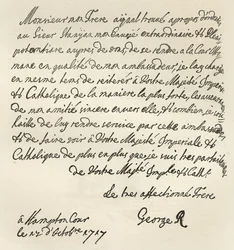 Monsieur mon Frere ayant trouvé apropos d'ordonner
au Sieur Stanian mon Envoyé extraordinaire et Pleni
potentiaire aupres de vous, de se rendre a la Cour Otto
mane en qualité de mon ambassadeur, je l'ay chargé
en mesme tems de reiterer à Vostre Majesté Imperiale
et Catholique de la maniere la plus forte, les assurances
de mon amitié sincere envers elle, et combien je sou
haitte de luy rendre service par cette ambassade
et de faire voir à Vostre Majesté Imperiale et
Catholique de plus en plus que je suis tres parfaitement
de Vostre Majesté Imple et Cathque
Le tres affectionné Frere
à Hampton Cour
George R
le d'Octobre 1717